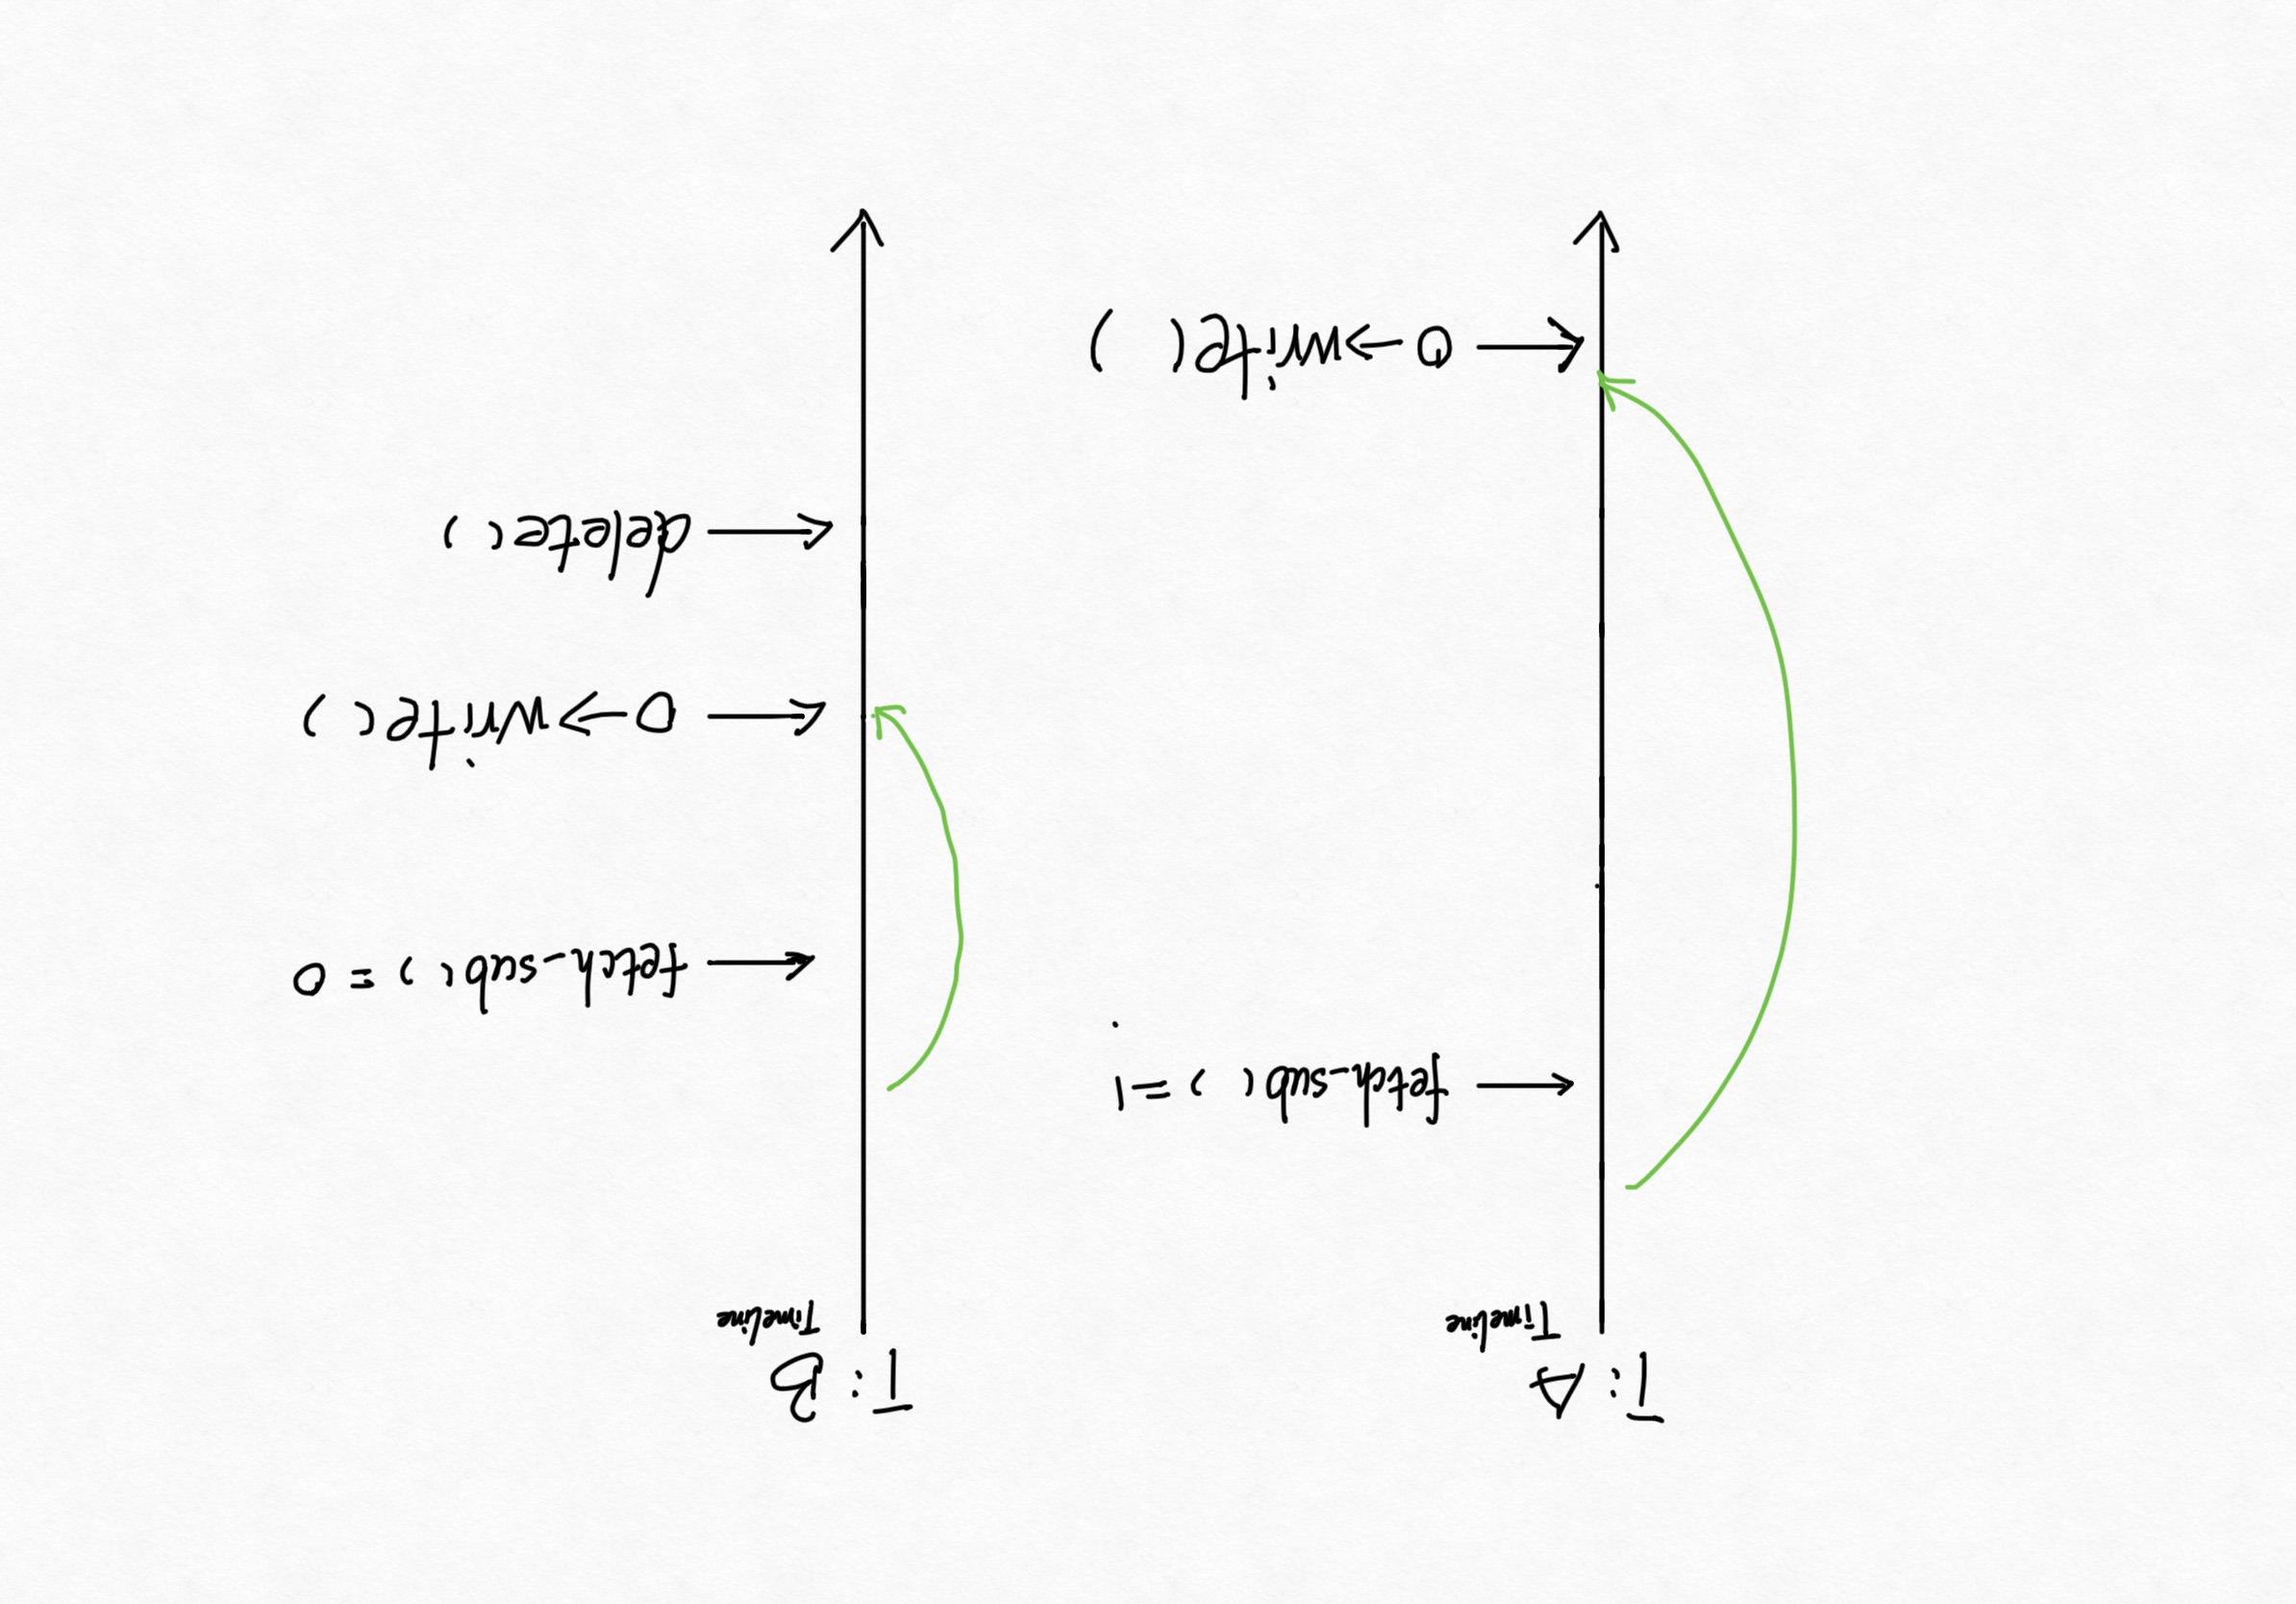 T: A
Timeline
← fetch_sub( ) = 1
← O→write( )
T: B
Timeline
← fetch_sub( ) = 0
← O→write( )
← delete( )